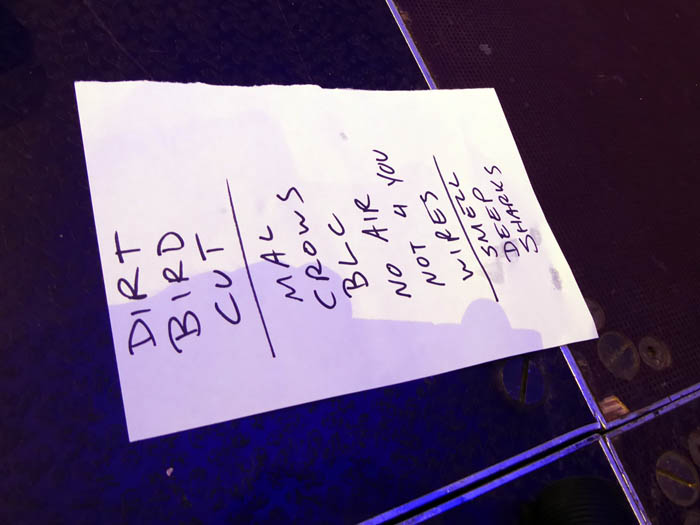 DIRT
BIRD
CUT
MAL
CROWS
BLC
NO AIR
NOT 4 YOU
WIRES
SMELL
DEEP
SHARKS